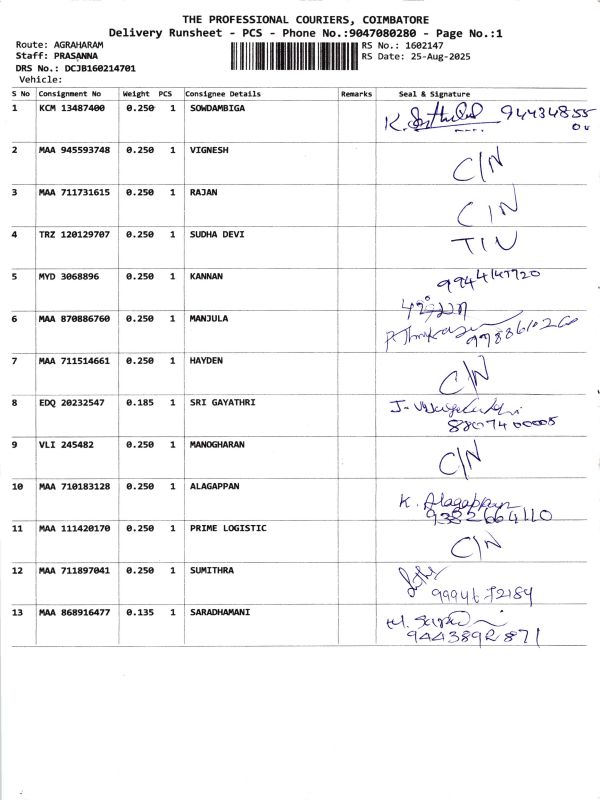 THE PROFESSIONAL COURIERS, COIMBATORE
Delivery Runsheet - PCS - Phone No.:9047080280 - Page No.:1
Route: AGRAHARAM RS No.: 1602147
Staff: PRASANNA RS Date: 25-Aug-2025
DRS No.: DCJB160214701
Vehicle:
S No Consignment No Weight PCS Consignee Details Remarks Seal & Signature
1 KCM 13487400 0.250 1 SOWDAMBIGA K. 94434855
2 MAA 945593748 0.250 1 VIGNESH C/N
3 MAA 711731615 0.250 1 RAJAN C/N
4 TRZ 120129707 0.250 1 SUDHA DEVI
5 MYD 3068896 0.250 1 KANNAN
6 MAA 870886760 0.250 1 MANJULA
7 MAA 711514661 0.250 1 HAYDEN C/N
8 EDQ 20232547 0.185 1 SRI GAYATHRI
9 VLI 245482 0.250 1 MANOGHARAN C/N
10 MAA 710183128 0.250 1 ALAGAPPAN K. Alagappan
9382664110
11 MAA 111420170 0.250 1 PRIME LOGISTIC C/N
12 MAA 711897041 0.250 1 SUMITHRA
99946 72184
13 MAA 868916477 0.135 1 SARADHAMANI
9443892871